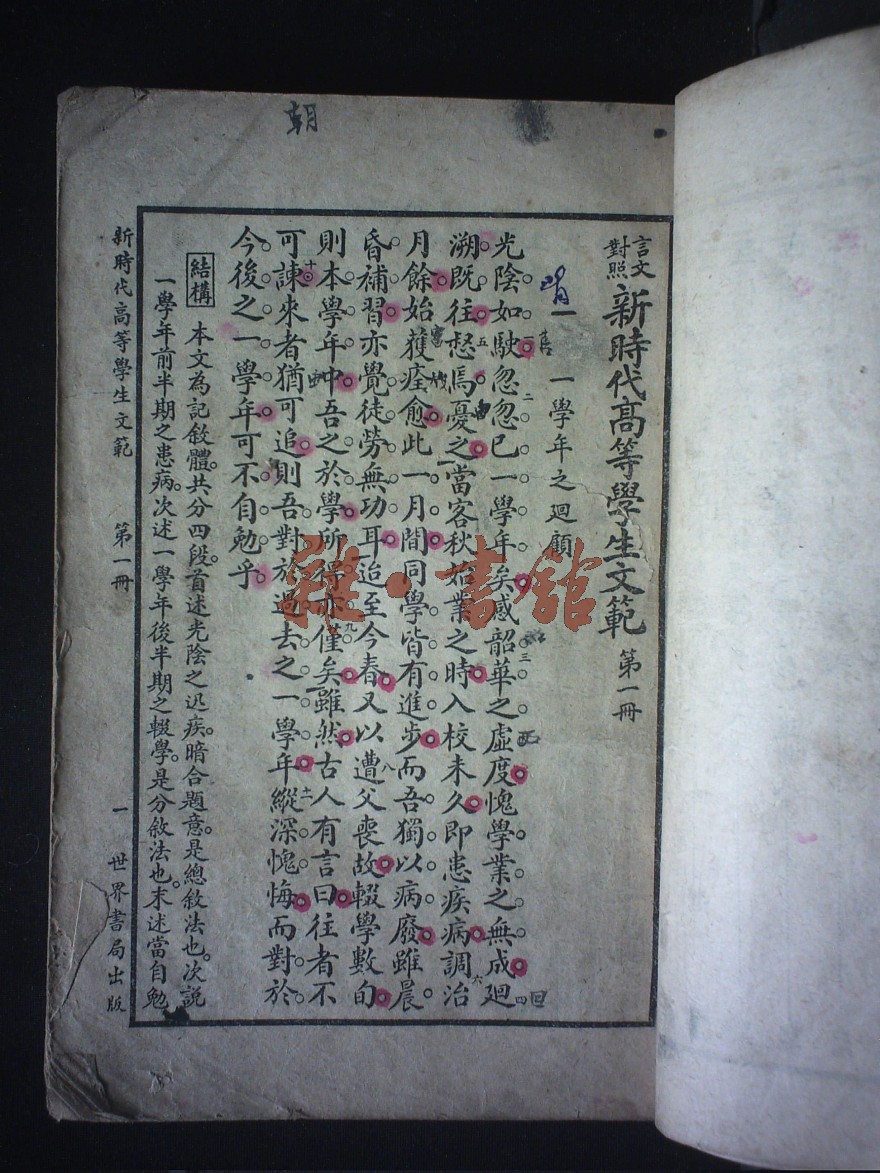 朝
言文對照 新時代高等學生文範 第一冊
一 一學年之迴顧
光陰如駛忽忽已一學年矣感韶華之虛度愧學業之無成迴
溯既往惄焉憂之當客秋始業之時入校未久即患疾病調治
月餘始獲痊愈此一月間同學皆有進步而吾獨以病廢雖晨
昏補習亦覺徒勞無功耳迨至今春又以遭父喪故輟學數旬
則本學年中吾之於學所得亦僅矣雖然古人有言曰往者不
可諫來者猶可追則吾對於過去之一學年縱深愧悔而對於
今後之一學年可不自勉乎
結構 本文為記敘體。共分四段。首述光陰之迅疾。暗合題意。是總敘法也。次說
一學年前半期之患病。次述一學年後半期之輟學。是分敘法也。末述當自勉
新時代高等學生文範 第一冊 一 世界書局出版
雜·書館